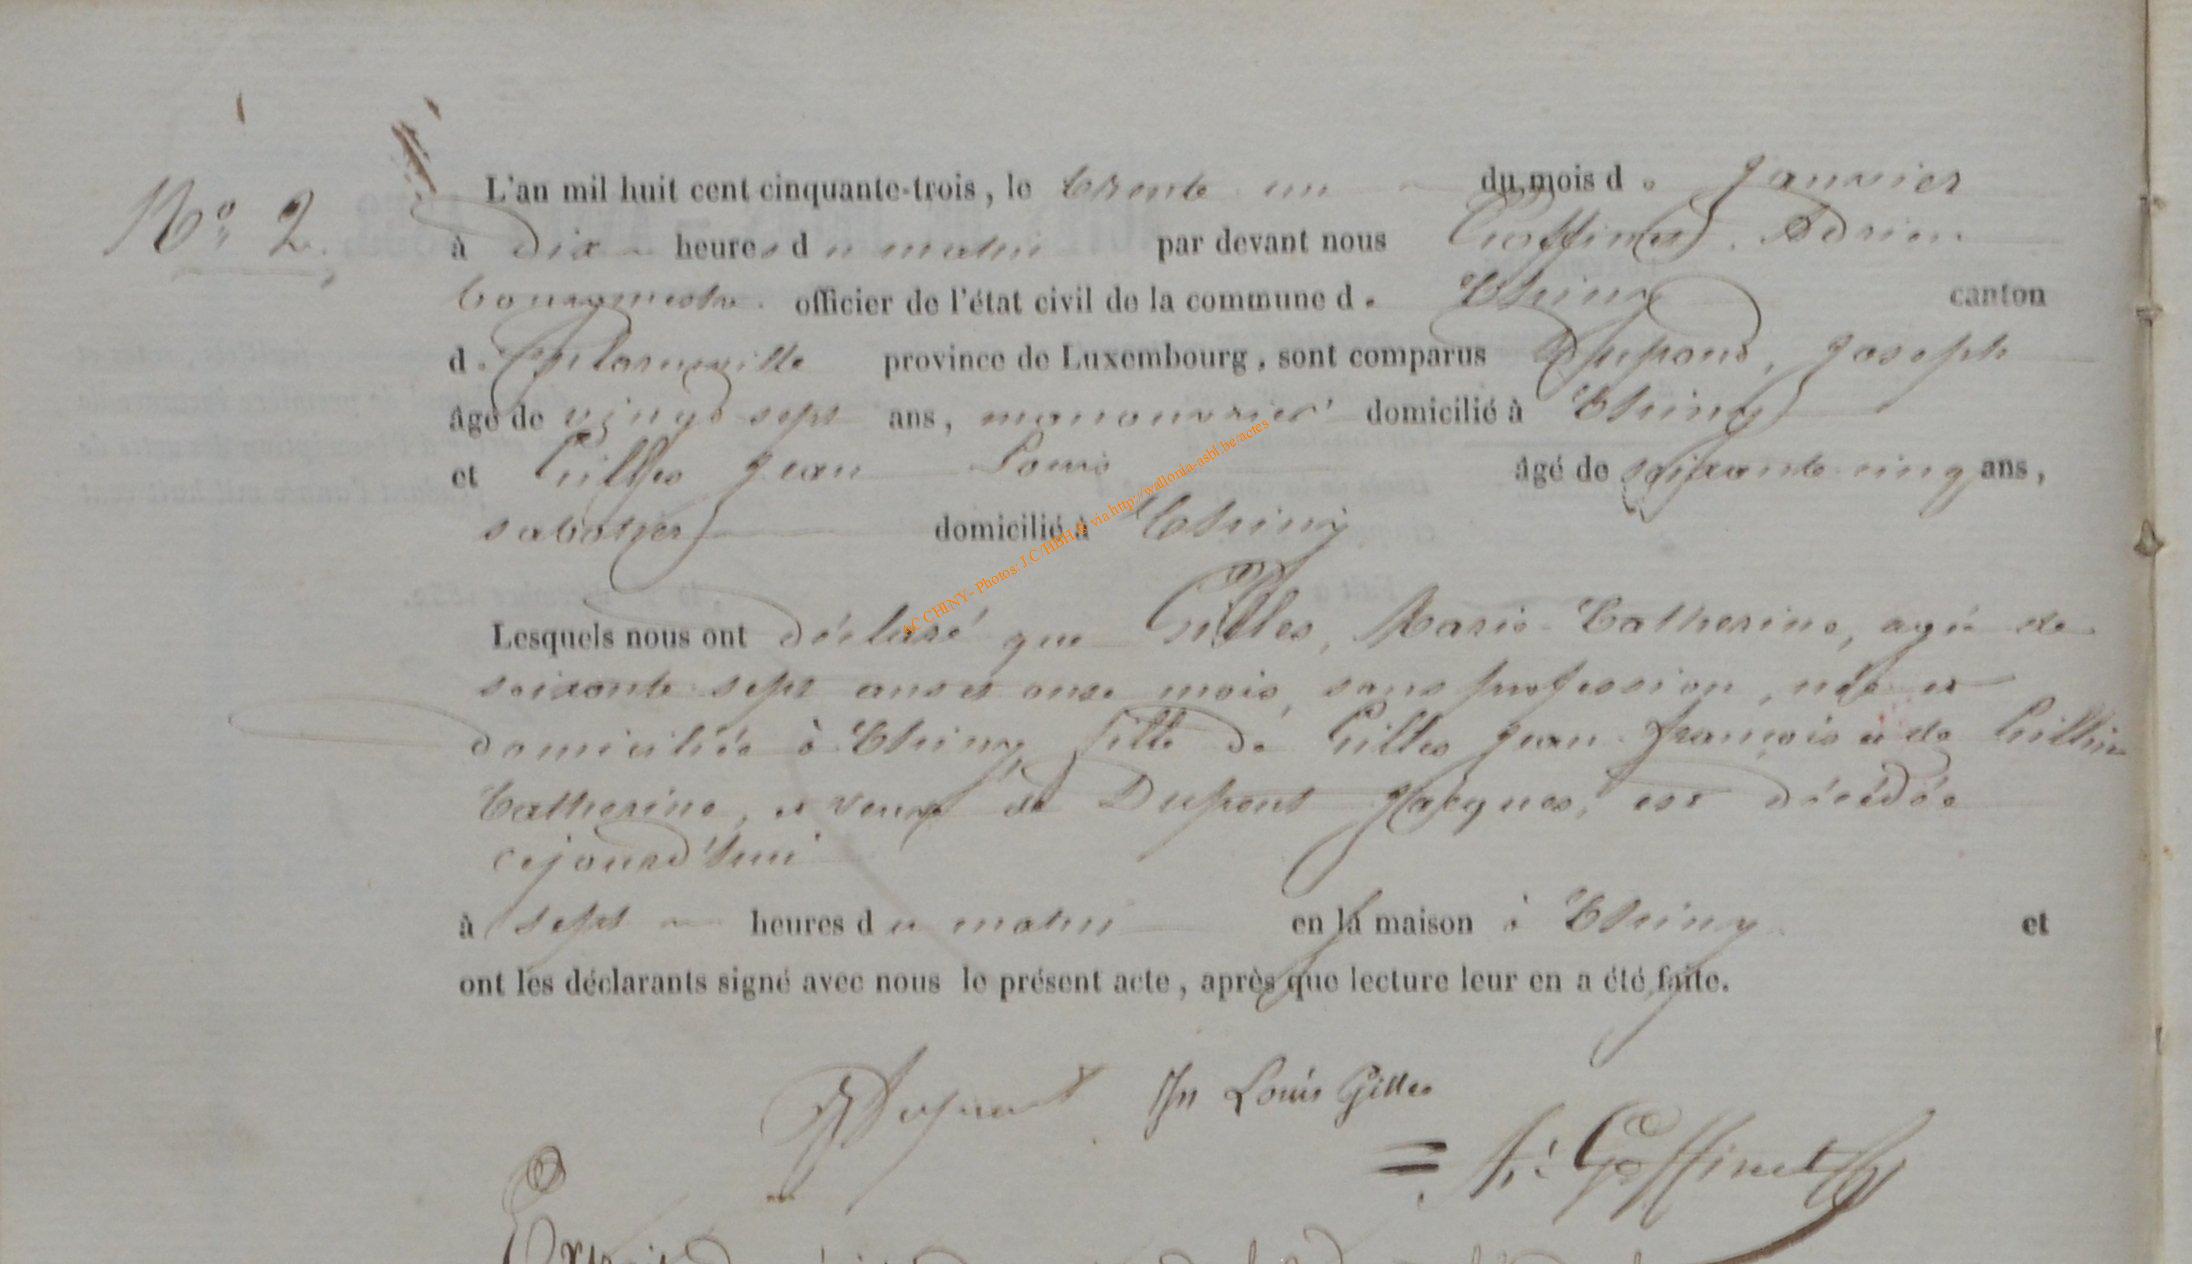 N° 2.
L'an mil huit cent cinquante-trois, le trente un du mois de Janvier
à dix heures du matin par devant nous Goffinet, Adrien
bourgmestre officier de l'état civil de la commune de Chiny canton
de florenville province de Luxembourg, sont comparus Dupond, Joseph
âgé de vingt sept ans, manouvrier domicilié à Chiny
et Gilles Jean Louis âgé de soixante cinq ans,
sabotier domicilié à Chiny
AC CHINY- Photos: J.C/HBH © via http://wallonia-asbl.be/actes
Lesquels nous ont déclaré que Gilles, Marie-Catherine, agée de
soixante sept ans et onze mois, sans profession, née et
domiciliée à Chiny, fille de Gilles Jean françois et de
Catherine, et veuve de Dupont Jacques, est décédée
cejourd'hui
à sept heures du matin en la maison à Chiny et
ont les déclarants signé avec nous le présent acte, après que lecture leur en a été faite.
JDupont Jn Louis Gilles
A: Goffinet